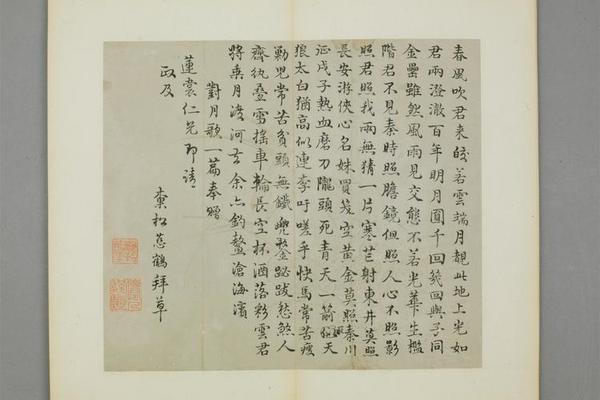 春風吹君来皎若雲端月靚此地上光如
君兩澄澈百年明月圓千回幾回與子同
金罍雖然風雨見交態不若光華生檻
階君不見秦時照膽鏡但照人心不照影
照君照我兩無猜一片寒芒射東井莫照
長安游俠心名姝買笑空黄金莫照秦川
征戍子熱血磨刀隴頭死青天一箭 天
狼太白猶高似連李吁嗟乎快馬常苦瘦
勤児常苦貧頭無鐵兜鍪跋愁煞人
齊紈疊雪摇車輪長空杯酒落彩雲君
將乘月渡河去余亦釣鼇滄海濱
對月歌一篇奉贈
蓮裳仁兄即請
政及
秉松慈鶴拜草